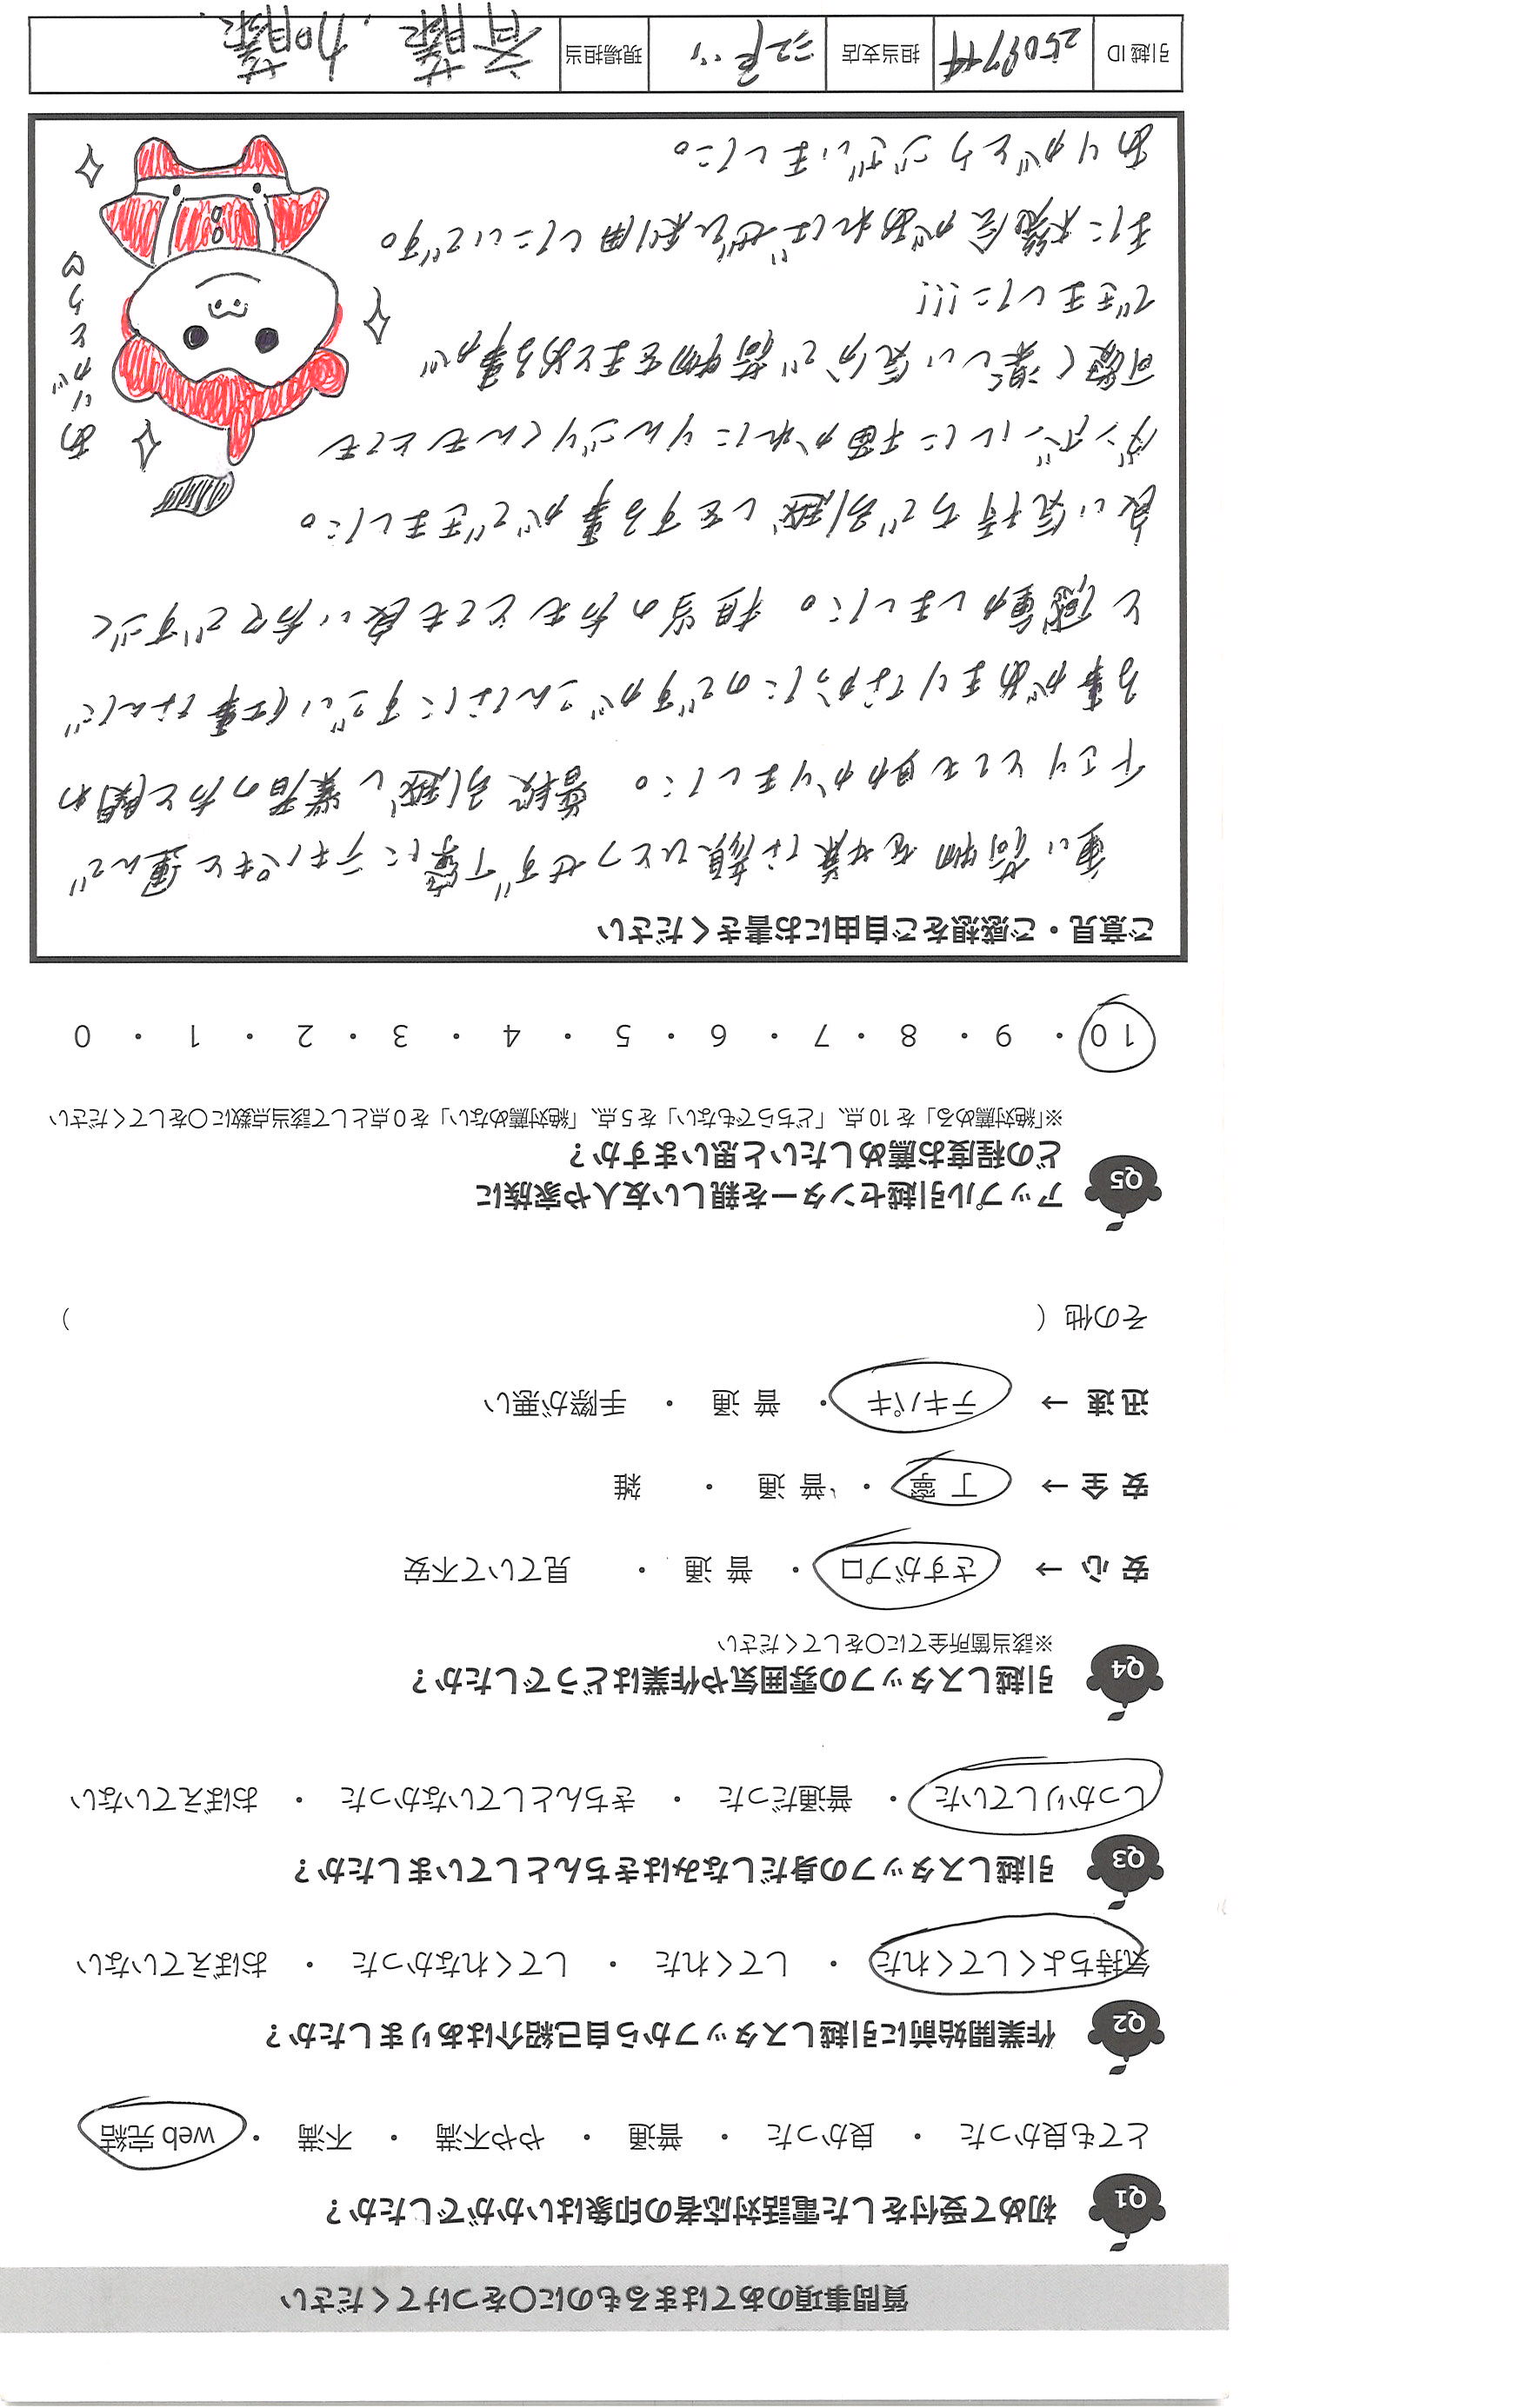 質問事項のあてはまるものに○をつけてください
Q1 初めて受付をした電話対応者の印象はいかがでしたか？
とても良かった ・ 良かった ・ 普通 ・ やや不満 ・ 不満 ・ web 完結
Q2 作業開始前に引越しスタッフから自己紹介はありましたか？
気持ちよくしてくれた ・ してくれた ・ してくれなかった ・ おぼえていない
Q3 引越しスタッフの身だしなみはきちんとしていましたか？
しっかりしていた ・ 普通だった ・ きちんとしていなかった ・ おぼえていない
Q4 引越しスタッフの雰囲気や作業はどうでしたか？
※該当箇所全てに○をしてください
安 心 → さすがプロ ・ 普 通 ・ 見ていて不安
安 全 → 丁 寧 ・ 普 通 ・ 雑
迅 速 → テキパキ ・ 普 通 ・ 手際が悪い
その他（ ）
Q5 アップル引越センターを親しい友人や家族に
どの程度お薦めしたいと思いますか？
※「絶対薦める」を 10 点、「どちらでもない」を 5 点、「絶対薦めない」を 0 点として該当点数に○をしてください
10 ・ 9 ・ 8 ・ 7 ・ 6 ・ 5 ・ 4 ・ 3 ・ 2 ・ 1 ・ 0
ご意見・ご感想をご自由にお書きください
重い荷物を嫌な顔ひとつせず丁寧にテキパキと運んで
下さりとても助かりました。 普段引越し業者の方と関わ
る事があまりなかったのですがこんなにすごい仕事なんだ
と感動しました。担当の方もとても良い方ですごく
良い気持ちで引越しをする事ができました。
ダンボールに描かれたりんごりくんもとても
可愛く楽しい気分で荷物をまとめる事が
できました!!!
また機会があればぜひ利用したいです。
ありがとうございました。
ありがとうっ
引越 ID 担当支店 現場担当 斉藤、加藤